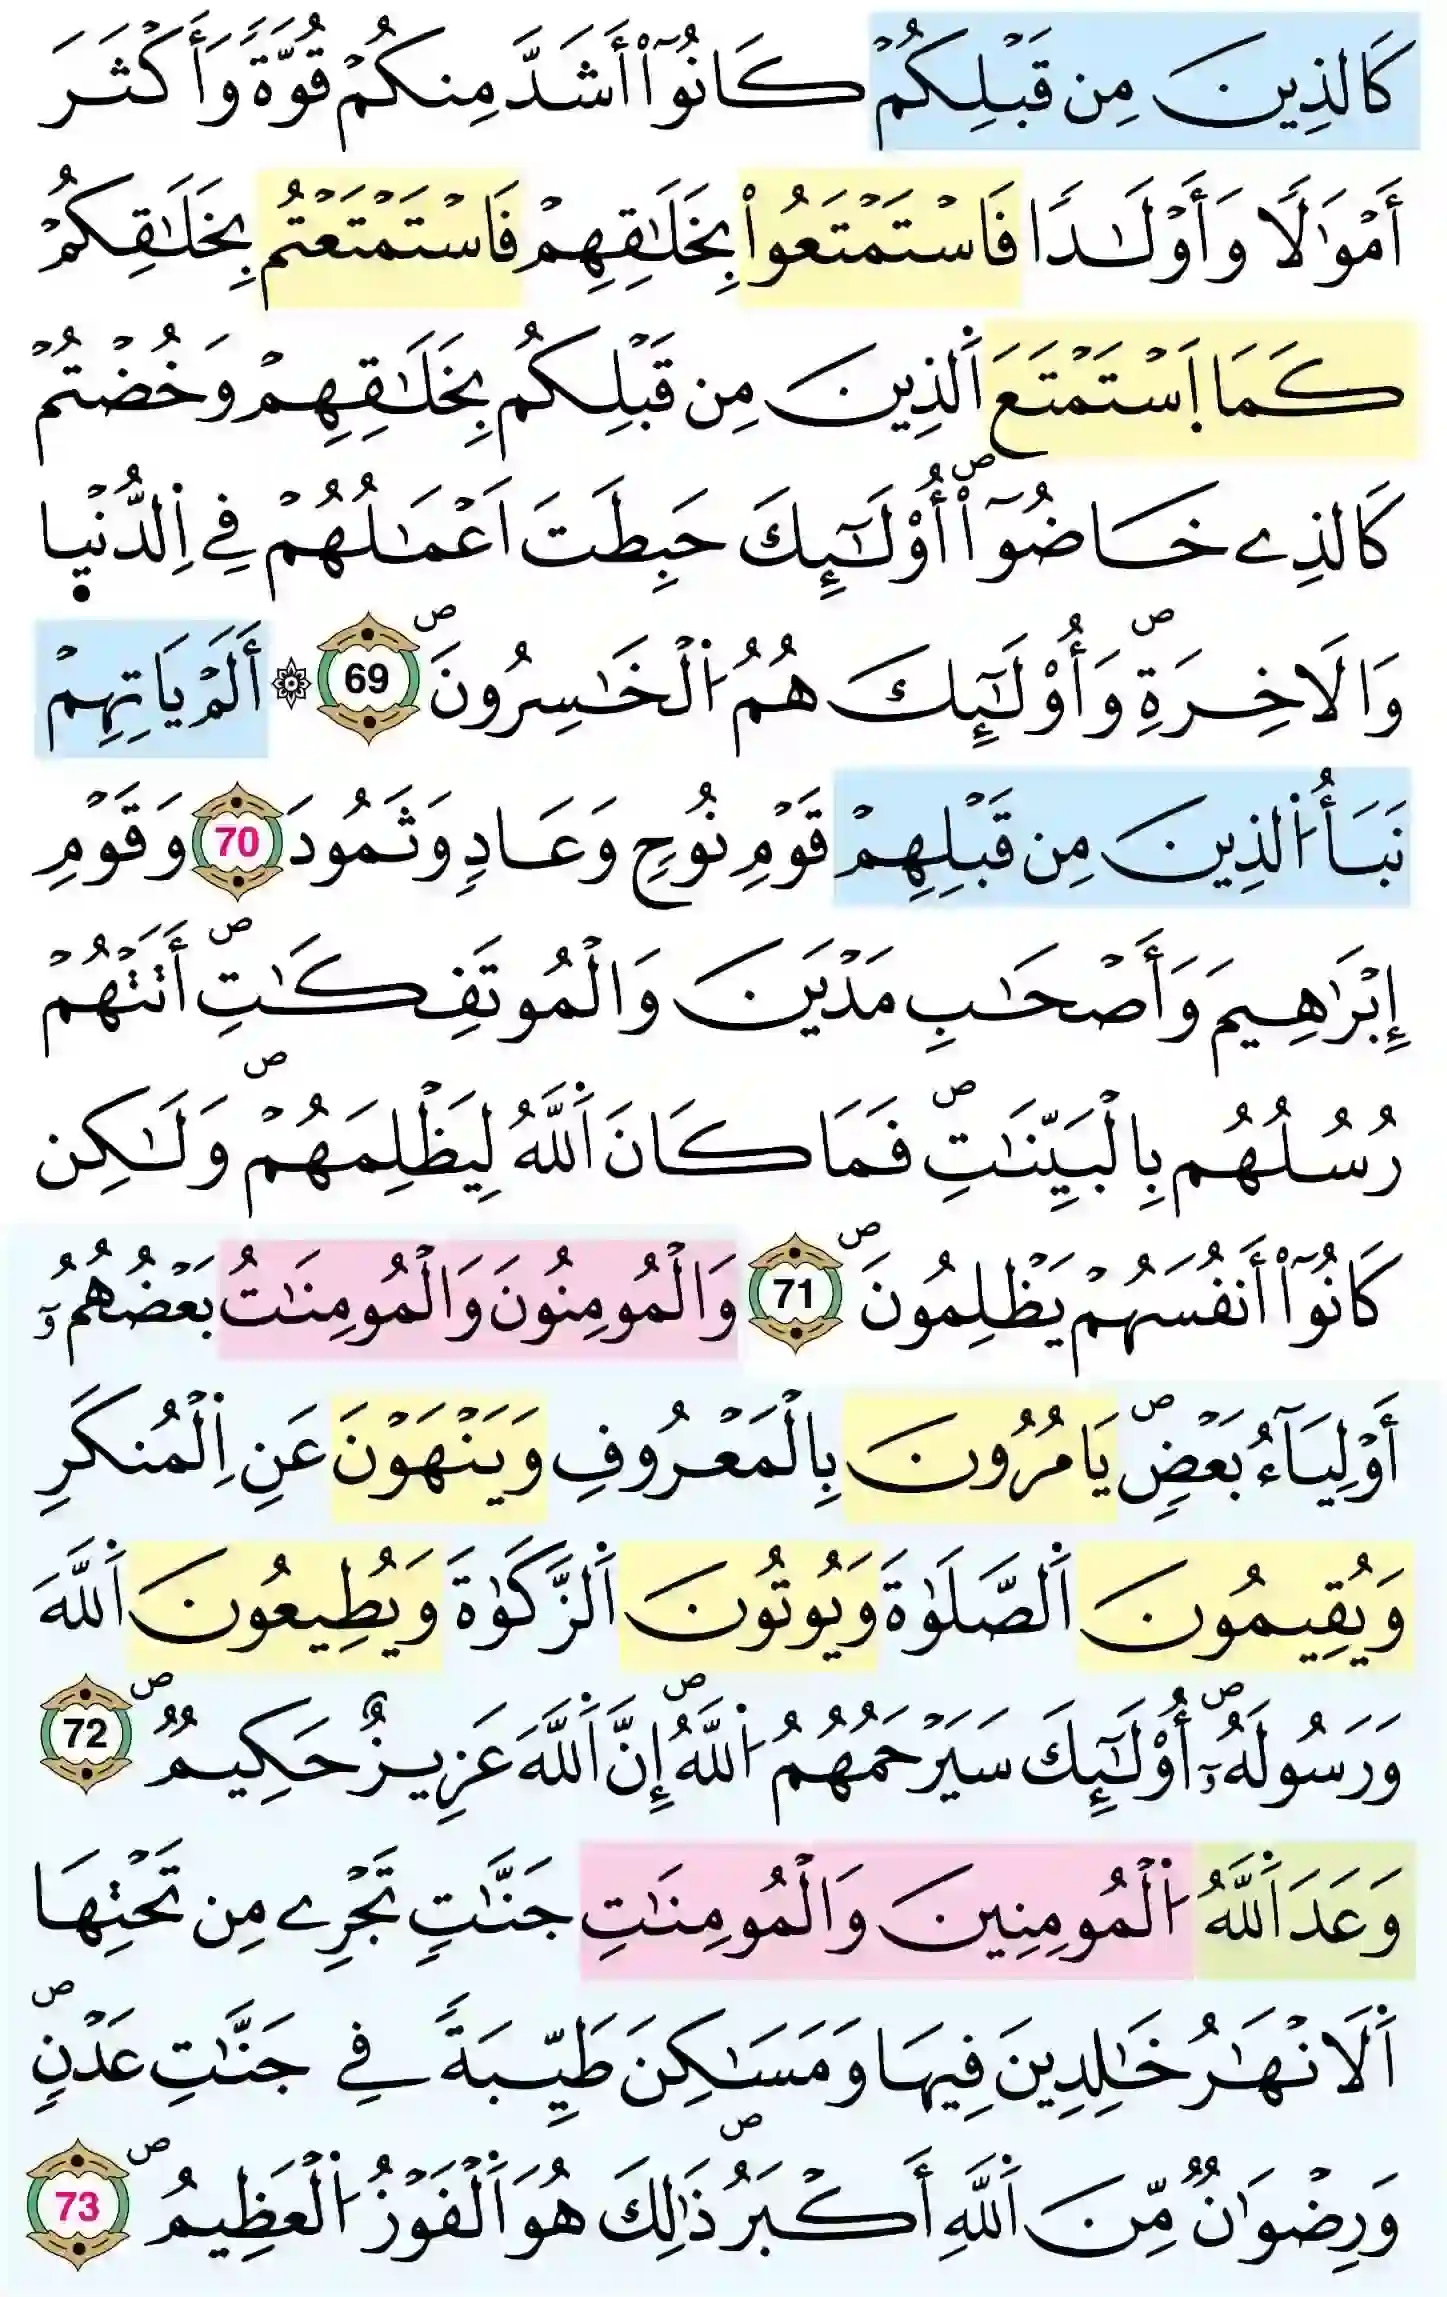 كَالذِينَ مِن قَبْلِكُمْ كَانُوٓاْ أَشَدَّ مِنكُمْ قُوَّةٗ وَأَكْثَرَ
أَمْوَٰلٗا وَأَوْلَٰدٗا فَاسْتَمْتَعُواْ بِخَلَٰقِهِمْ فَاسْتَمْتَعْتُم بِخَلَٰقِكُمْ
كَمَا اَسْتَمْتَعَ اَلذِينَ مِن قَبْلِكُم بِخَلَٰقِهِمْ وَخُضْتُمْ
كَالذِے خَاضُوٓاْۖ أُوْلَٰٓئِكَ حَبِطَتَ اَعْمَٰلُهُمْ فِے اِلدُّنْيٜا
وَالَاخِرَةِۖ وَأُوْلَٰٓئِكَ هُمُ اُلْخَٰسِرُونَۖ 69 ۞ أَلَمْ يَاتِهِمْ
نَبَأُ اُلذِينَ مِن قَبْلِهِمْ قَوْمِ نُوحٖ وَعَادٖ وَثَمُودَ 70 وَقَوْمِ
إِبْرَٰهِيمَ وَأَصْحَٰبِ مَدْيَنَ وَالْمُوتَفِكَٰتِۖ أَتَتْهُمْ
رُسُلُهُم بِالْبَيِّنَٰتِۖ فَمَا كَانَ اَللَّهُ لِيَظْلِمَهُمْۖ وَلَٰكِن
كَانُوٓاْ أَنفُسَهُمْ يَظْلِمُونَۖ 71 وَالْمُومِنُونَ وَالْمُومِنَٰتُ بَعْضُهُمُۥٓ
أَوْلِيَآءُ بَعْضٖۖ يَامُرُونَ بِالْمَعْرُوفِ وَيَنْهَوْنَ عَنِ اِلْمُنكَرِ
وَيُقِيمُونَ اَلصَّلَوٰةَ وَيُوتُونَ اَلزَّكَوٰةَ وَيُطِيعُونَ اَللَّهَ
وَرَسُولَهُۥٓۖ أُوْلَٰٓئِكَ سَيَرْحَمُهُمُ اُللَّهُۖ إِنَّ اَللَّهَ عَزِيزٌ حَكِيمٞۖ 72
وَعَدَ اَللَّهُ اُلْمُومِنِينَ وَالْمُومِنَٰتِ جَنَّٰتٖ تَجْرِے مِن تَحْتِهَا
اَلَانْهَٰرُ خَٰلِدِينَ فِيهَا وَمَسَٰكِنَ طَيِّبَةٗ فِے جَنَّٰتِ عَدْنٖۖ
وَرِضْوَٰنٞ مِّنَ اَللَّهِ أَكْبَرُۖ ذَٰلِكَ هُوَ اَلْفَوْزُ اُلْعَظِيمُۖ 73